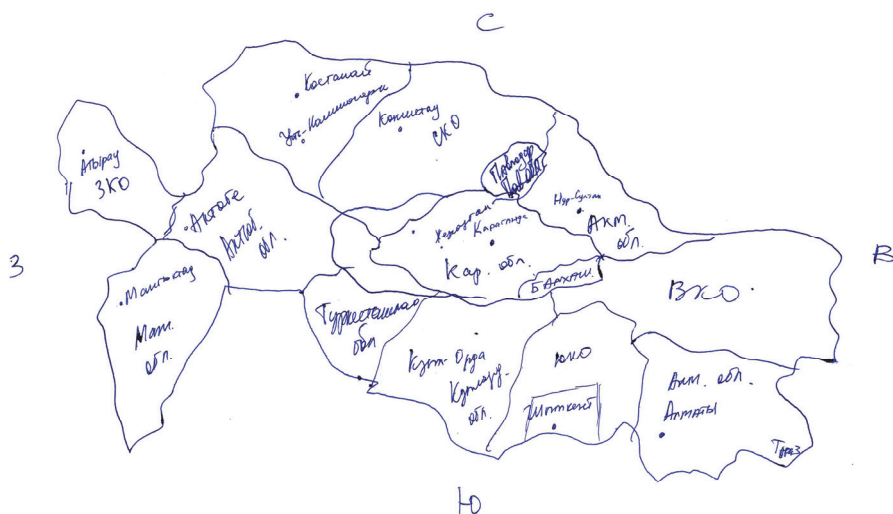 С
Костанай
Усть-Каменогорск
Кокшетау
СКО
Атырау
ЗКО
Павлодар
Пав. обл.
Актобе
Актоб.
обл.
Нур-Султан
Акм.
обл.
Жезказган
Караганда
Кар. обл.
Балхаш.
З
В
Мангистау
Манг.
обл.
Туркестанская
обл
ВКО
Кзыл-Орда
Кзылорд.
обл.
ЮКО
Шымкент
Алм. обл.
Алматы
Тараз
Ю